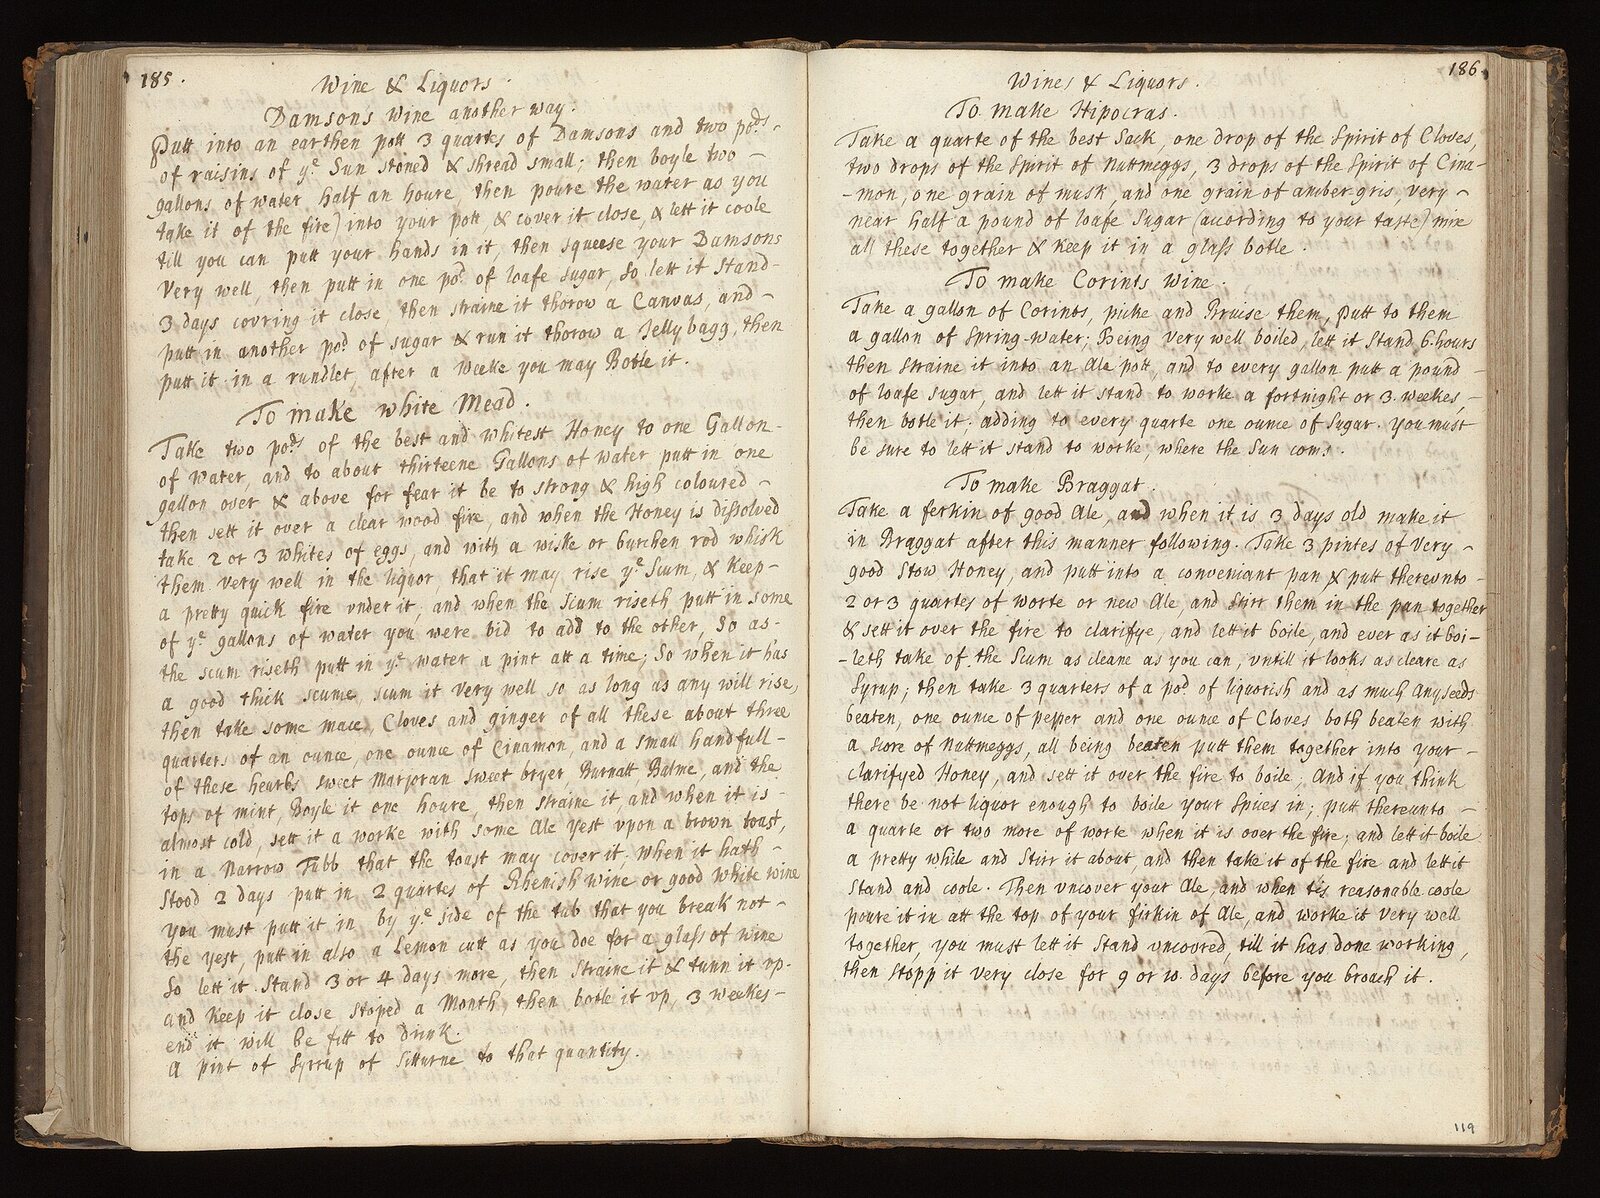 185.
Wine & Liquors.
Damsons Wine another way.
Putt into an earthen pott 3 quartes of Damsons and two pods.
of raisins of ye. Sun stoned & shread small; then boyle two
gallons of water half an houre, then poure the water as you
take it of the fire) into your pott, & cover it close, & lett it coole
till you can putt your hands in it, then squeese your Damsons
very well, then putt in one pod. of loafe sugar, so lett it stand
3 days covring it close, then straine it thorow a Canvas, and
putt in another pod. of sugar & run it thorow a Jelly bagg, then
putt it in a rundlet, after a weeke you may Botle it.
To make white Mead.
Take two pods. of the best and whitest Honey to one Gallon
of water, and to about thirteene Gallons of water putt in one
gallon over & above for fear it be to strong & high coloured
then sett it over a clear wood fire, and when the Honey is dissolved
take 2 or 3 whites of eggs, and with a wiske or burchen rod whisk
them very well in the liquor that it may rise ye. Scum, & keep
a pretty quick fire vnder it, and when the scum riseth putt in some
of ye. gallons of water you were bid to add to the other, so as
the scum riseth putt in ye. water a pint att a time; So when it has
a good thick scume, scum it very well so as long as any will rise,
then take some mace, Cloves and ginger of all these about three
quarters of an ounce, one ounce of Cinamon, and a small handfull
of these hearbs sweet Marjoran sweet bryer Burnatt Balme, and the
tops of mint, Boyle it one houre, then straine it, and when it is
almost cold, sett it a worke with some Ale yest vpon a brown toast,
in a Narrow Tubb that the toast may cover it; when it hath
stood 2 days putt in 2 quartes of Rhenish wine or good white wine
you must putt it in by ye. side of the tub that you break not
the yest, putt in also a Lemon cutt as you doe for a glass of wine
So lett it stand 3 or 4 days more, then straine it & tunn it vp.
and keep it close stoped a Month, then botle it vp, 3 weekes
end it will be fitt to drink.
A pint of Syrrup of Sitturne to that quantity.
186.
Wines & Liquors.
To make Hipocras.
Take a quarte of the best Sack, one drop of the Spirit of Cloves,
two drops of the Spirit of Nuttmeggs, 3 drops of the Spirit of Cina-
-mon, one grain of musk, and one grain of ambergris, very
near half a pound of loafe sugar (acording to your taste) mix
all these together & keep it in a glass botle.
To make Corints Wine.
Take a gallon of Corints, picke and Bruise them, putt to them
a gallon of Spring-water; Being very well boiled, lett it stand 6. hours
then straine it into an Ale pott, and to every gallon putt a pound
of loafe sugar, and lett it stand to worke a fortnight or 3. weekes,
then botle it. adding to every quarte one ounce of sugar. You must
be sure to lett it stand to worke, where the Sun coms.
To make Braggat.
Take a ferkin of good Ale, and when it is 3 days old make it
in Braggat after this manner following. Take 3 pintes of very
good Stow Honey, and putt into a conveniant pan, & putt therevnto
2 or 3 quartes of worte or new Ale, and stirr them in the pan together
& sett it over the fire to clarifye, and lett it boile, and ever as it boi-
-leth take of the Scum as cleane as you can, vntill it looks as cleare as
Syrup; then take 3 quarters of a pod. of liquorish and as much Anyseeds
beaten, one ounce of pepper and one ounce of Cloves both beaten with
a score of Nuttmeggs, all being beaten putt them together into your
clarifyed Honey, and sett it over the fire to boile; And if you think
there be not liquor enough to boile your Spices in; putt therevnto
a quarte or two more of worte when it is over the fire; and lett it boile
a pretty while and Stirr it about and then take it of the fire and lett it
stand and coole. Then vncover your Ale, and when tis reasonable coole
poure it in att the top of your firkin of Ale, and worke it very well
together, you must lett it stand vncovred, till it has done working,
then stopp it very close for 9 or 10. days before you broach it.
119